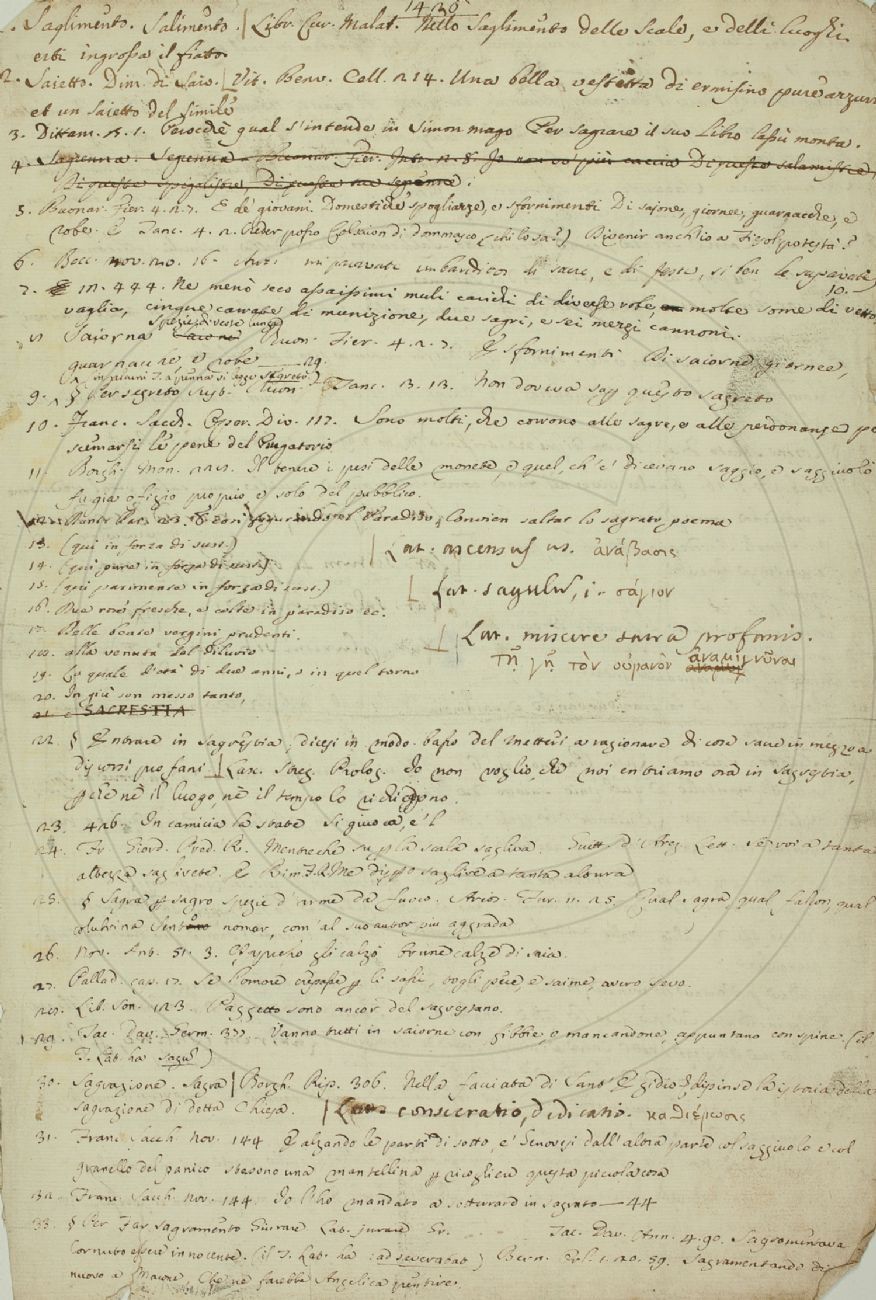 1430
1. Saglimento. Salimento. | Libr. Cur. Malat. Nello saglimento delle scale, e delli luoghi
erti ingrossa il fiatto.
2. Saietto. Dim. di Saio. | Vit. Benv. Cell. 214. Una bella vestetta di ermisino pure azzurro
et un saietto del simile
3. Dittam. 1. Perocchè qual s'intende in Simon mago Per sagrare il suo libro lassù monta.
4. Sapenna. Segenna. Buonar. Fier.
Di queste
5. Buonar. Fier. 4. 2. 7. E de' giovani Domestiche spogliagze, e sfornimenti Di sajone, giornee, guarnacche, e
robe. E Tanc. 4. 2. Veder posso Cole con di dommasco (chi lo sa?) Divenir anch'io a Fiesol potestà?
6. Bocc. nov. 20. 16. e di feste, si ben le sapavate
10.
7. E 444. Ne menò seco assaissimi muli carichi di diverse robe, molte some di vetto
vaglia, cinque carrate di munizione, due sagri, e sei mezzi cannoni.
spezie di veste lunga
8. Saiorna Buon. Fier. 4. 2. 7. E sfornimenti Di saiorne giornee,
guarnacche e robe 29.
9. § Per segreto Sust. Buon. Tanc. 13. 13. Non doveva sapp questo sagreto
10. Franc. Sacch. Oper. Div. 117. Sono molti, che corrono alle sagre, e alle perdonanze pe
scemarsi le pene del Purgatorio
11. Borgh. Mon. Il tenere i pesi delle monete, e quel, ch'e' dicevano saggio, e saggiuolo
fu già ofizio propio e solo del pubblico.
12. Dante Par. 23. E così figurando il Paradiso, Convien saltar lo sagrato poema
13. (qui in forza di sust.) | Lat. ascensus us. ἀνάβασις
14. (qui pure in forza di sust.)
15. (qui parimente in forza di sust.) | Lat. sagulus, i. σάγιον
16. Due rose fresche, e colte in paradiso ec.
17. Belle beate vergini prudenti. | Lat. miscere sacra profanis.
18. alla venuta del diluvio τῇ γῇ τὸν οὐρανὸν ἀναμιγνῦναι
19. La quale d'età di due anni, o in quel torno
20. In giù son messo tanto,
21. SACRESTIA
22. § Entrare in sagrestia, dicesi in modo basso del mettersi a ragionare di cose sacre in mezzo a
discorsi profani. | Lasc. Streg. Prolog. Io non voglio, che noi entriamo ora in sagrestia,
pchè nè il luogo, nè il tempo lo richieggono.
23. 426. In camicia la state Si giuoca, e'l
24. Fr. Giord. Pred. R. Mentreche su pp la scala sagliva. Guitt. d'Arez. Lett. Se voi a tanta
altezza saglirete. E Rim. Me disposto saglire a tanta altura
25. § Sagra p sagro spezie d'arme da fuoco. Arios. Fur. 11. 25. Qual sagra, qual falcon, qual
colubrina Sento nomar, com'al suo autor più aggrada
26. Nov. Ant. 51. 3. Appresso gli calzò brune calze di saia.
27. Pallad. cap. 17. Se l'omore crepasse p li sassi, togli pece, e saime, avero sevo.
28. Lib. Son. 123. Paggetto sono ancor del sagrestano.
29. Tac. Dav. Germ. 377. Vanno tutti in saiorne con fibbie, o mancandone, appuntano con spine. (il
T. Lat. ha sagum)
30. Sagrazione. Sagra | Borgh. Rip. 306. Nella facciata di Sant'Egidio dipinse la istoria della
sagrazione di detta Chiesa. | Lat. consecratio, dedicatio. καθιέρωσις
31. Franc. Sacch. Nov. 144 E alzando le parti di sotto, e' Genovesi dall'altra parte col saggiuolo e col
granello del panico stesono una mantellina p ricogliere questa piccola cosa
32. Franc. Sacch. Nov. 144. Io l'ho mandato a sotterrar in sagrato — 44
33. § Per Far sagramento Giurare Lat. jurare Gr. Tac. Dav. Ann. 4. 90. Sagramentava
Cornuto essere innocente. (il T. Lat. ha adseverabat) Bern. Orl. 1. 20. 59. Sagramentando di
nuovo a Macone, Che ne farebbe Angelica pentire.